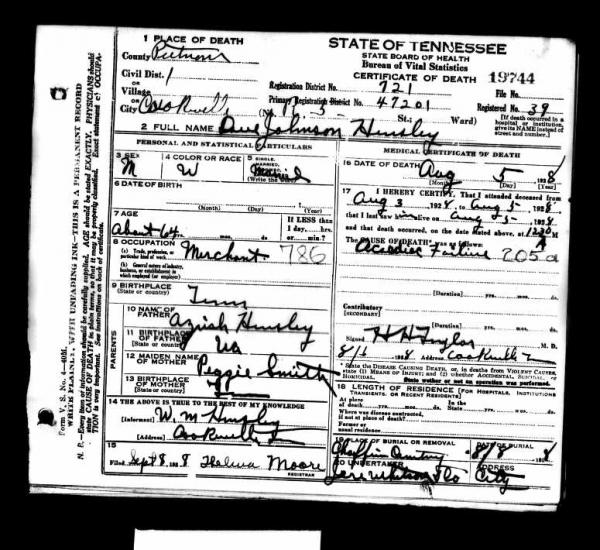 STATE OF TENNESSEE
STATE BOARD OF HEALTH
Bureau of Vital Statistics
CERTIFICATE OF DEATH 19744
1 PLACE OF DEATH
County Putnam
Civil Dist. 1
or
Village
or
City Cookeville
Registration District No. 721 File No.
Primary Registration District No. 47201 Registered No. 39
St.; Ward)
[If death occurred in a hospital or institution, give its NAME instead of street and number.]
2 FULL NAME Johnson Hensley
PERSONAL AND STATISTICAL PARTICULARS
3 SEX M
4 COLOR OR RACE W
5 SINGLE, MARRIED,
6 DATE OF BIRTH
(Month) (Day) (Year)
7 AGE
About 64 yrs. mos. ds.
If LESS than
1 day, hrs.
or min.?
8 OCCUPATION
(a) Trade, profession, or particular kind of work Merchant 786
(b) General nature of industry, business, or establishment in which employed (or employer)
9 BIRTHPLACE
(State or country) Tenn
PARENTS
10 NAME OF FATHER Aziah Hensley
11 BIRTHPLACE OF FATHER
(State or country) Va
12 MAIDEN NAME OF MOTHER Peggie Smith
13 BIRTHPLACE OF MOTHER
(State or country)
14 THE ABOVE IS TRUE TO THE BEST OF MY KNOWLEDGE
(Informant) W. M. Hensley
[Address] Cookeville
15
Filed Sept 8, 1928 Thelma Moore
REGISTRAR
MEDICAL CERTIFICATE OF DEATH
16 DATE OF DEATH Aug 5 1928
(Month) (Day) (Year)
17 I HEREBY CERTIFY, That I attended deceased from
Aug 3 1928, to Aug 5, 1928
that I last saw him alive on Aug 5, 1928
and that death occurred, on the date stated above, at 1230 A M
The CAUSE OF DEATH was as follows:
Failure 205a
(Duration) yrs. mos. ds.
Contributory
(SECONDARY)
(Duration) yrs. mos. ds.
Signed H H Taylor M. D.
1928 Address Cookeville
State the DISEASE CAUSING DEATH, or, in deaths from VIOLENT CAUSES, state (1) MEANS OF INJURY; and (2) whether ACCIDENTAL, SUICIDAL, or HOMICIDAL.
State whether or not an operation was performed.
18 LENGTH OF RESIDENCE (FOR HOSPITALS, INSTITUTIONS, TRANSIENTS, OR RECENT RESIDENTS)
At place of death yrs. mos. ds. State yrs. mos. ds.
Where was disease contracted,
if not at place of death?
Former or
usual residence
19 PLACE OF BURIAL OR REMOVAL DATE OF BURIAL
8/8 1928
20 UNDERTAKER ADDRESS
Whitson City
Form V. S. No. 4—40M.
WRITE PLAINLY, WITH UNFADING INK—THIS IS A PERMANENT RECORD
N. B.—Every item of information should be carefully supplied. AGE should be stated EXACTLY. PHYSICIANS should state CAUSE OF DEATH in plain terms, so that it may be properly classified. Exact statement of OCCUPATION is very important. See instructions on back of certificate.